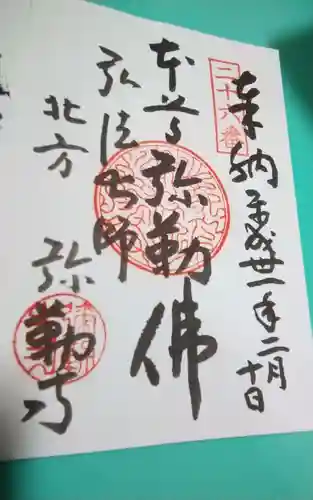 奉納 平成卅一年二月十日
二十六番
本尊 弥勒佛
弘法大師
北方 弥勒寺